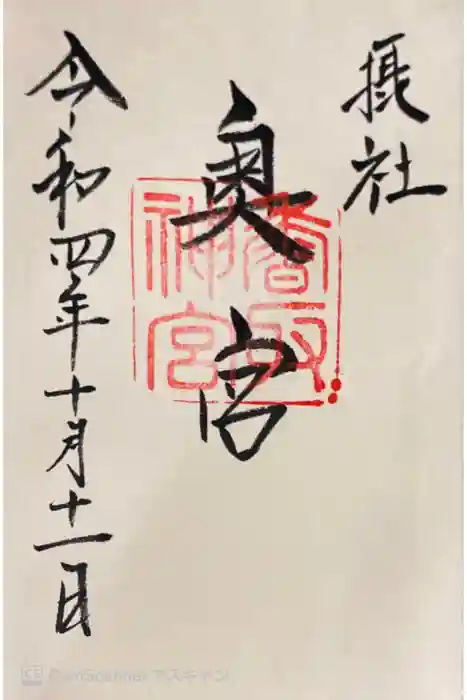 摂社
奥宮
香取
神宮
令和四年十月十一日
CS CamScanner でスキャン